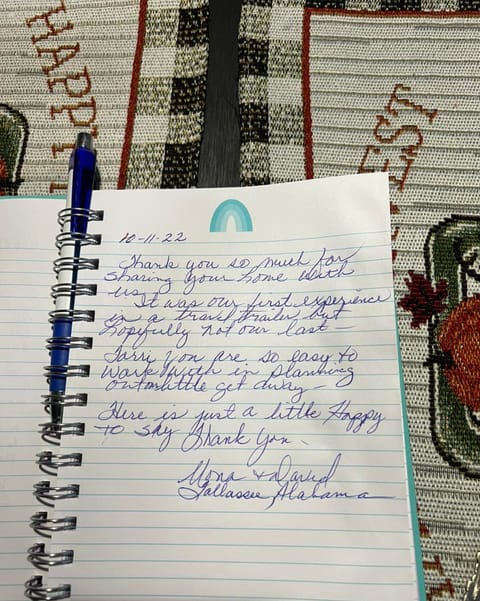 HAPPY
EST
10-11-22
Thank you so much for
sharing your home with
us.
It was our first experience
in a travel trailer, but
hopifully not our last —
Tarri you are so easy to
work with in planning
our little get away —
Here is just a little Happy
to say Thank You -
Mona & David
Tallassee Alabama